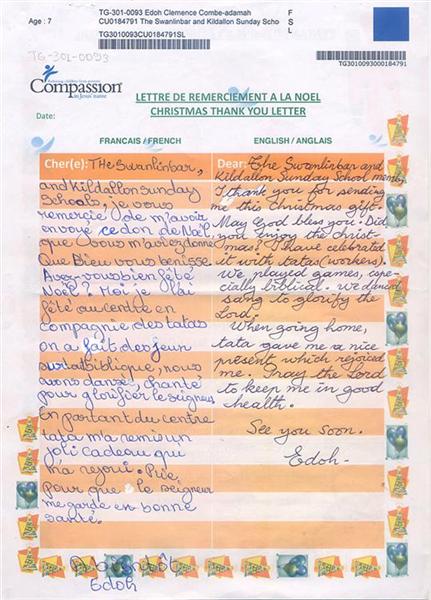 Age : 7
TG-301-0093 Edoh Clemence Combe-adamah
CU0184791 The Swanlinbar and Kildallon Sunday Scho
TG3010093CU0184791SL
F
S
L
TG3010093000184791
TG-301-0093
Compassion
in Jesus' name
LETTRE DE REMERCIEMENT A LA NOEL
CHRISTMAS THANK YOU LETTER
Date:
FRANCAIS / FRENCH
Cher(e): The Swanlinbar,
and Kildallon sunday
Schools, je vous
remercie de m'avoir
envoye ce don de Noël
que vous m'aviez donne
Que Dieu vous benisse
Avez-vous bien fêté
Noël? Moi je l'ai
fêté au centre en
compagnie des tatas
on a fait des jeux
surtout biblique, nous
avons danser, chanté
pour glorifier le seigneur
En partant du centre
tata m'a remis un
joli cadeau qui
m'a rejoui. Prie
pour que le seigneur
me garde en bonne
santé.
A bientôt
Edoh
ENGLISH / ANGLAIS
Dear: The Swanlinbar and
Kildallon Sunday School
I thank you for sending
me this christmas gift.
May God bless you. Did
you enjoy the christ-
mas? I have celebrated
it with tatas (workers).
We played games, espe-
cially biblical. We danced
sang to glorify the
Lord.
When going home,
tata gave me a nice
present which rejoiced
me. Pray the Lord
to keep me in good
health.
See you soon.
Edoh-